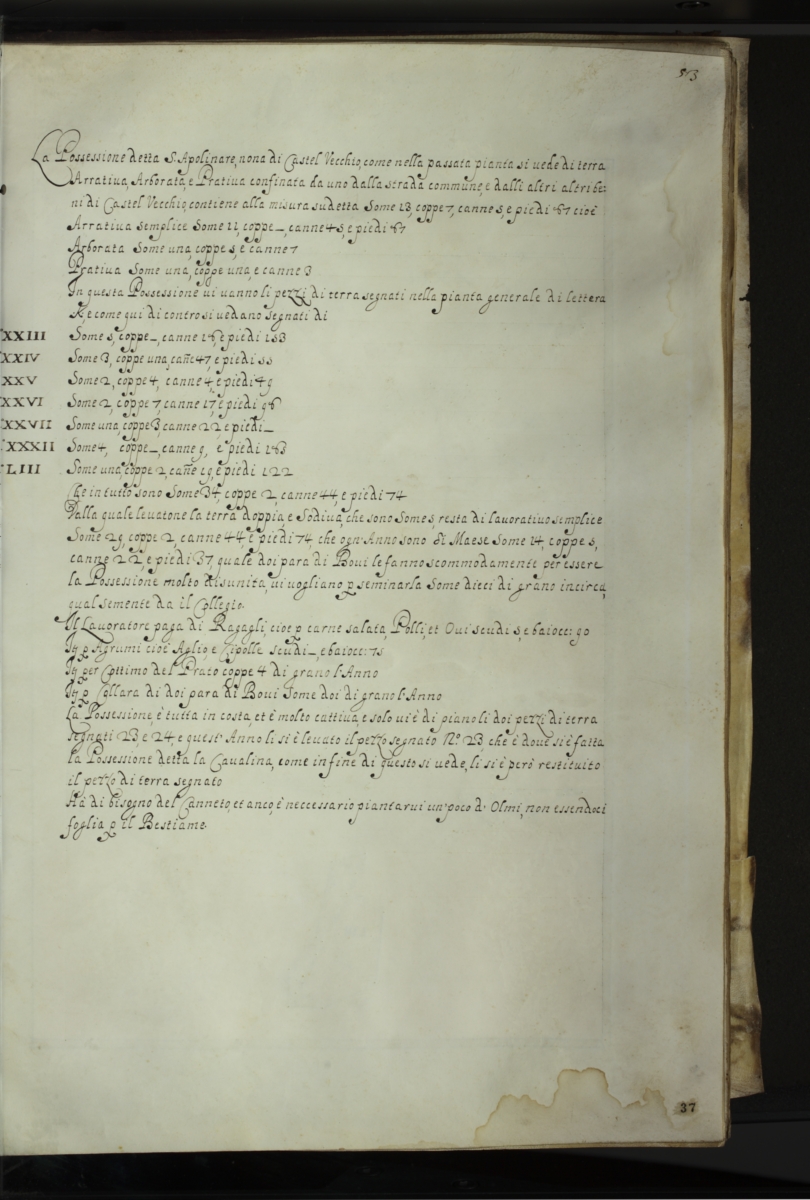 513
La Possessione detta S. Apolinare, nona di Castel Vecchio, come nella passata pianta si uede di terra
Arratiua, Arborata, e Pratiua confinata da uno dalla strada commune, e dalli altri altri be:
ni di Castel Vecchio, contiene alla misura sudetta Some 13, coppe 7, canne 5, e piedi 87 cioè
Arratiua semplice Some 11, coppe _, canne 45, e piedi 87
Arborata Some una, coppe 5, e canne 7
Pratiua Some una, coppe una, e canne 3
In questa Possessione ui uanno li pezzi di terra segnati nella pianta generale di lettera
K e come qui di contro si uedano segnati di
XXIII Some 5, coppe _, canne 18, e piedi 153
XXIV Some 3, coppe una, cañe 47, e piedi 55
XXV Some 2, coppe 4, canne 4, e piedi 49
XXVI Some 2, coppe 7, canne 17, e piedi 98
XXVII Some una, coppe 3, canne 22, e piedi _
XXXII Some 4, coppe _, canne 9, e piedi 183
LIII Some una, coppe 2, cañe 19, e piedi 122
Che in tutto sono Some 34, coppe 2, canne 44, e piedi 74
Dalla quale leuatone la terra doppia, e Sodiua, che sono Some 5, resta di lauoratiuo semplice
Some 29, coppe 2, canne 44 e piedi 74, che ogn'Anno sono di Maese Some 14, coppe 5,
canne 22, e piedi 37, quale doi para di Boui le fanno scommodamente per essere
la Possessione molto disunita, ui uogliano p seminarla Some dieci di grano incirca,
qual semente da il Collegio.
Il Lauoratore paga di Regagli, cioe p carne salata, Polli, et Oui scudi 5, e baiocc: 90
It p Agrumi cioe Aglio, e Cipolle scudi _ e baiocc: 75
It per Cottimo del Prato coppe 4 di grano l'Anno
It p Collara di doi para di Boui Some doi di grano l'Anno
La Possessione, è tutta in costa, et è molto cattiua, e solo ui è di piano li doi pezzi di terra
segnati 23 e 24 e quest' Anno li si è leuato il pezzo segnato N.º 23, che è doue si è fatta
la Possessione detta la Caualina, come in fine di questo si uede, li si è però restituito
il pezzo di terra segnato
Hà di bisogno del Canneto, et anco, è necessario piantarui un' poco d' Olmi, non essendoci
foglia p il Bestiame.
37